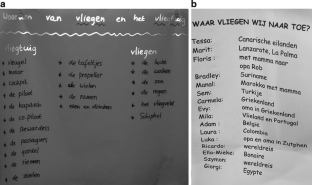 a
Woorden van vliegen en het vliegtuig
vliegtuig
vliegen
vleugel
motor
cockpit
de piloot
de co piloot
de passagiers
de gordel
de riemen
de stoelen
de tafeltjes
de propeller
de wielen
de ramen
eten en drinken
de lucht
de wolken
de zon
de regen
het vliegveld
Schiphol
b
WAAR VLIEGEN WIJ NAAR TOE?
Tessa: Canarische eilanden
Marit: Lanzarote, La Palma
Flors: met mamma naar
opa Rob
Bradley: Suriname
Manal: Marokko met mamma
Sem: Turkije
Carmela: Griekenland
Evy: oma in Griekenland
Mila: Vlieland en Portugal
Adam: België
Laura: Colombia
Luka: opa en oma in Zutphen
Ricardo: wereldreis
Ella-Mieke: Bonaire
Szymon: wereldreis
Giorgi: Egypte